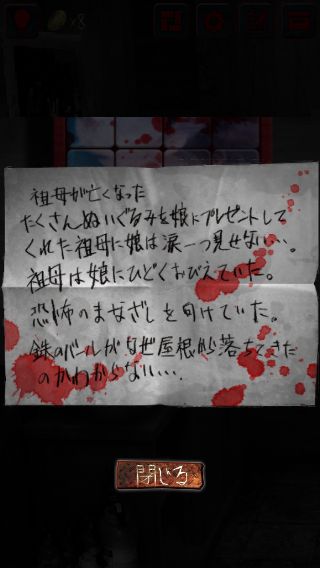 ×8
祖母が亡くなった
たくさんぬいぐるみを娘にプレゼントして
くれた祖母に娘は涙一つ見せない…。
祖母は娘にひどくおびえていた。
恐怖のまなざしを向けていた。
鉄のバールがなぜ屋根から落ちてきた
のかわからない…．
閉じる